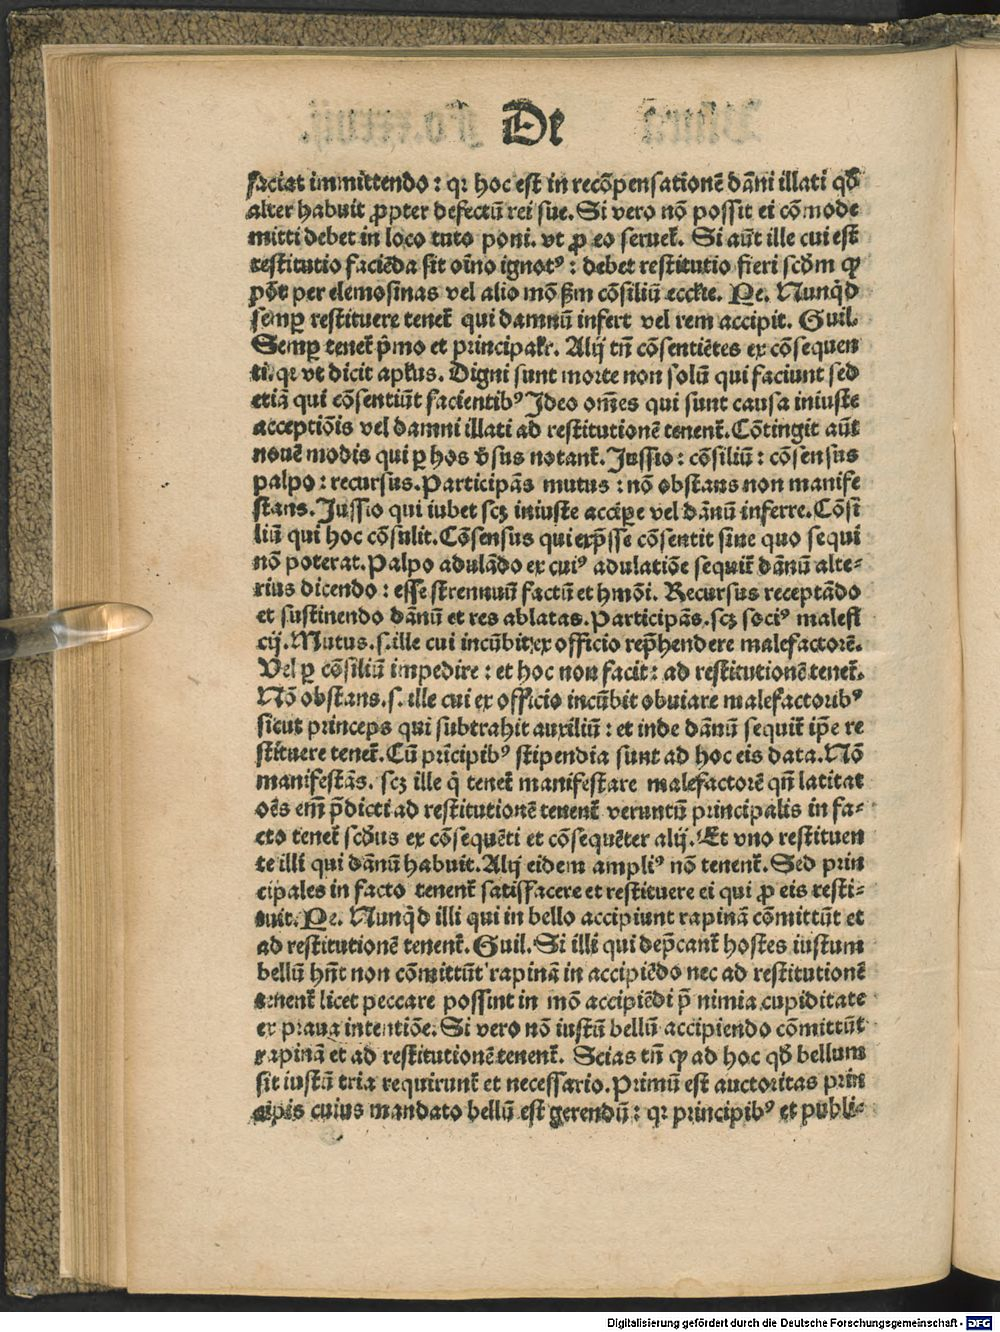 De
faciat immittendo: qꝛ hoc est in recōpensationē dāni illati qď
alter habuit ꝓpter defectū rei sue. Si vero nō possit ei cōmode
mitti debet in loco tuto poni. vt ꝓ eo seruet̃. Si aūt ille cui est
restitutio faciēda sit oīno ignotꝰ: debet restitutio fieri scďm ꝙ
põt per elemosinas vel alio mō ẞm cōsiliū eccłie. Pe. Nunqͥd
semꝑ restituere tenet̃ qui damnū infert vel rem accipit. Guil.
Semꝑ tenet̃ p̄mo et principałr. Alij tñ cōsentiētes ex cōsequen
ti. qꝛ vt dicit apłus. Digni sunt morte non solū qui faciunt sed
etiā qui cōsentiūt facientibꝰ Ideo om̄es qui sunt causa iniuste
acceptiōis vel damni illati ad restitutionē tenent̃. Cōtingit aūt
nouē modis qui ꝑ hos v̓sus notant̃. Jussio: cōsiliū: cōsensus
palpo: recursus. Participās mutus: nō obstans non manife
stans. Jussio qui iubet scꝫ iniuste acciꝑe vel dānū inferre. Cōsi
liū qui hoc cōsulit. Cōsensus qui exp̄sse cōsentit sine quo sequi
nō poterat. Palpo adulādo ex cuiꝰ adulatiōe sequit̃ dānū alte⸗
rius dicendo: esse strennuū factū et hmōi. Recursus receptādo
et sustinendo dānū et res ablatas. Participās. scꝫ sociꝰ malefi
cij. Mutus. s. ille cui incūbit ex officio rep̄hendere malefactorē.
Vel ꝑ cōsiliū impedire: et hoc non facit: ad restitutionē tenet̃.
Nō obstans. s. ille cui ex officio incūbit obuiare malefactoribꝰ
sicut princeps qui subtrahit auxiliū: et inde dānū sequit̃ ip̄e re
stituere tenet̃. Cū prīcipibꝰ stipendia sunt ad hoc eis data. Nō
manifestās. scꝫ ille q̇ tenet̃ manifestare malefactorē qn̄ latitat
oēs em̄ p̄dicti ad restitutionē tenent̃ veruntū principalis in fa⸗
cto tenet̃ scďus ex cōsequēti et cōsequēter alij. Et vno restituen
te illi qui dānū habuit. Alij eidem ampliꝰ nō tenent̃. Sed prin
cipales in facto tenent̃ satisfacere et restituere ei qui ꝓ eis resti⸗
tuit. Pe. Nunqͥd illi qui in bello accipiunt rapinā cōmittūt et
ad restitutionē tenent̃. Guil. Si illi qui dep̄cant̃ hostes iustum
bellū hñt non cōmittūt rapinā in accipiēdo nec ad restitutionē
tenent̃ licet peccare possint in mō accipiēdi p̄ nimia cupiditate
ex praua intentiōe. Si vero nō iustū bellū accipiendo cōmittūt
rapinā et ad restitutionē tenent̃. Scias tñ ꝙ ad hoc qď bellum
sit iustū tria requirunt̃ et necessario. Primū est auctoritas prin
cipis cuius mandato bellū est gerendū: qꝛ principibꝰ et publi⸗
Digitalisierung gefördert durch die Deutsche Forschungsgemeinschaft - DFG